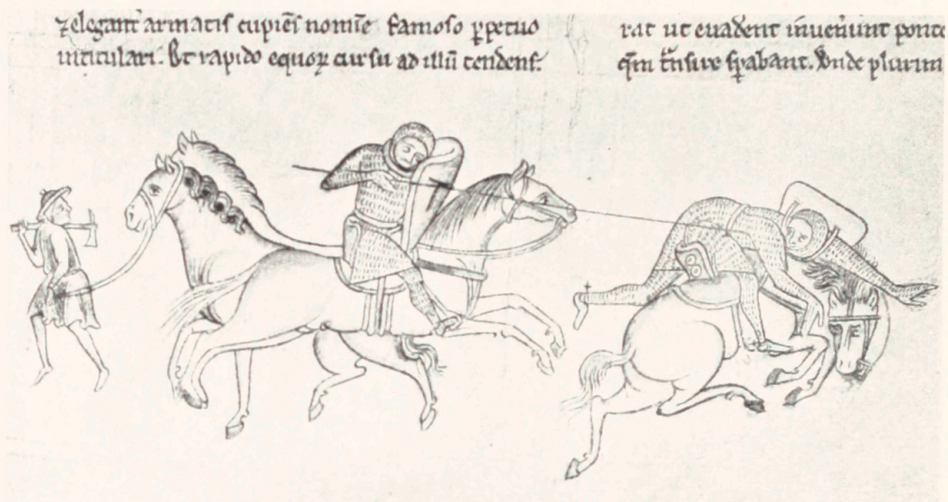 ⁊ elegant̾ armatis cupiēs nomīe famoso ꝑpetuo
intitulari. Et rapido equoꝝ cursu ad illū tendens.
rat ut evaderent invenerunt ponte
qm̄ tn̄sire sꝑabant. Unde plurim